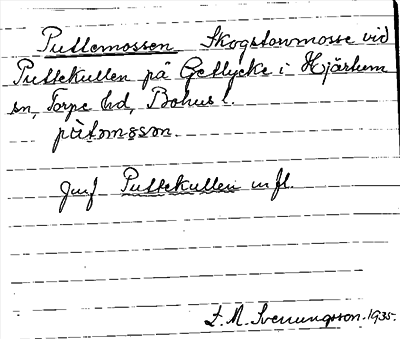 Puttemossen Skogstorvmosse vid
Puttekullen på Getlycke i Hjärtum
sn, Torpe hd, Bohus l.
Jmf Puttekullen m fl.
L. M. Svenungsson. 1935.